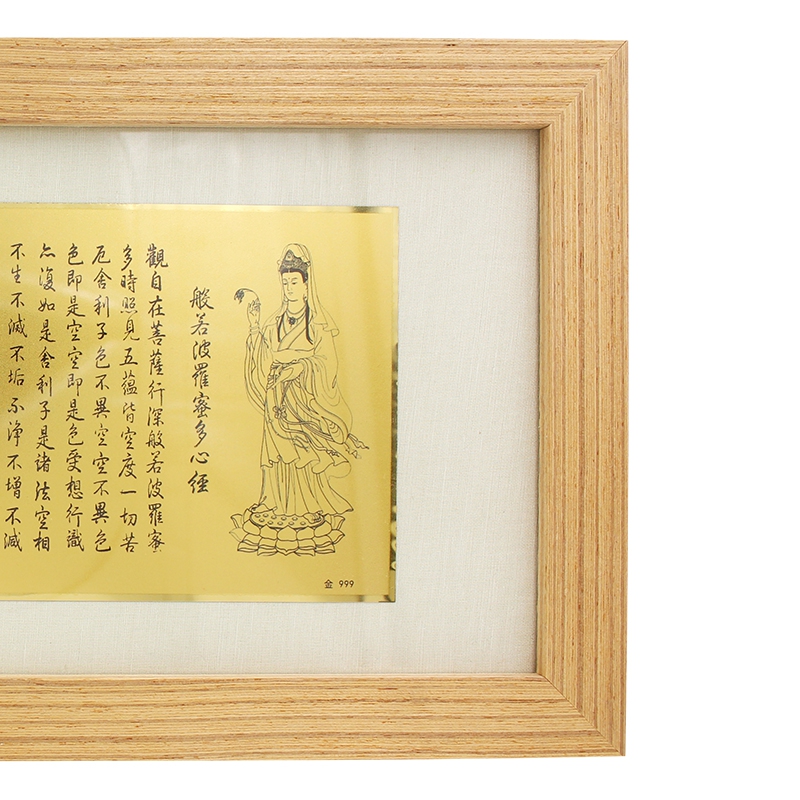 般若波羅蜜多心經
觀自在菩薩行深般若波羅蜜
多時照見五蘊皆空度一切苦
厄舍利子色不異空空不異色
色即是空空即是色受想行識
亦復如是舍利子是諸法空相
不生不滅不垢不淨不增不減
金 999